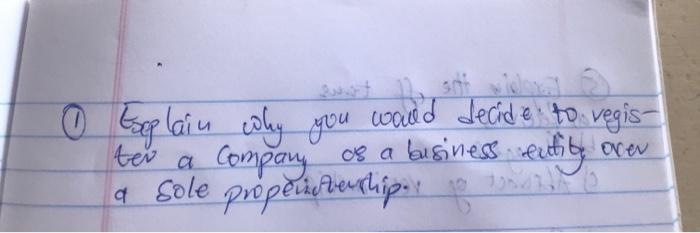 ① Explain why you would decide to regis-
ter a Company as a business entity over
a sole propeirtership.